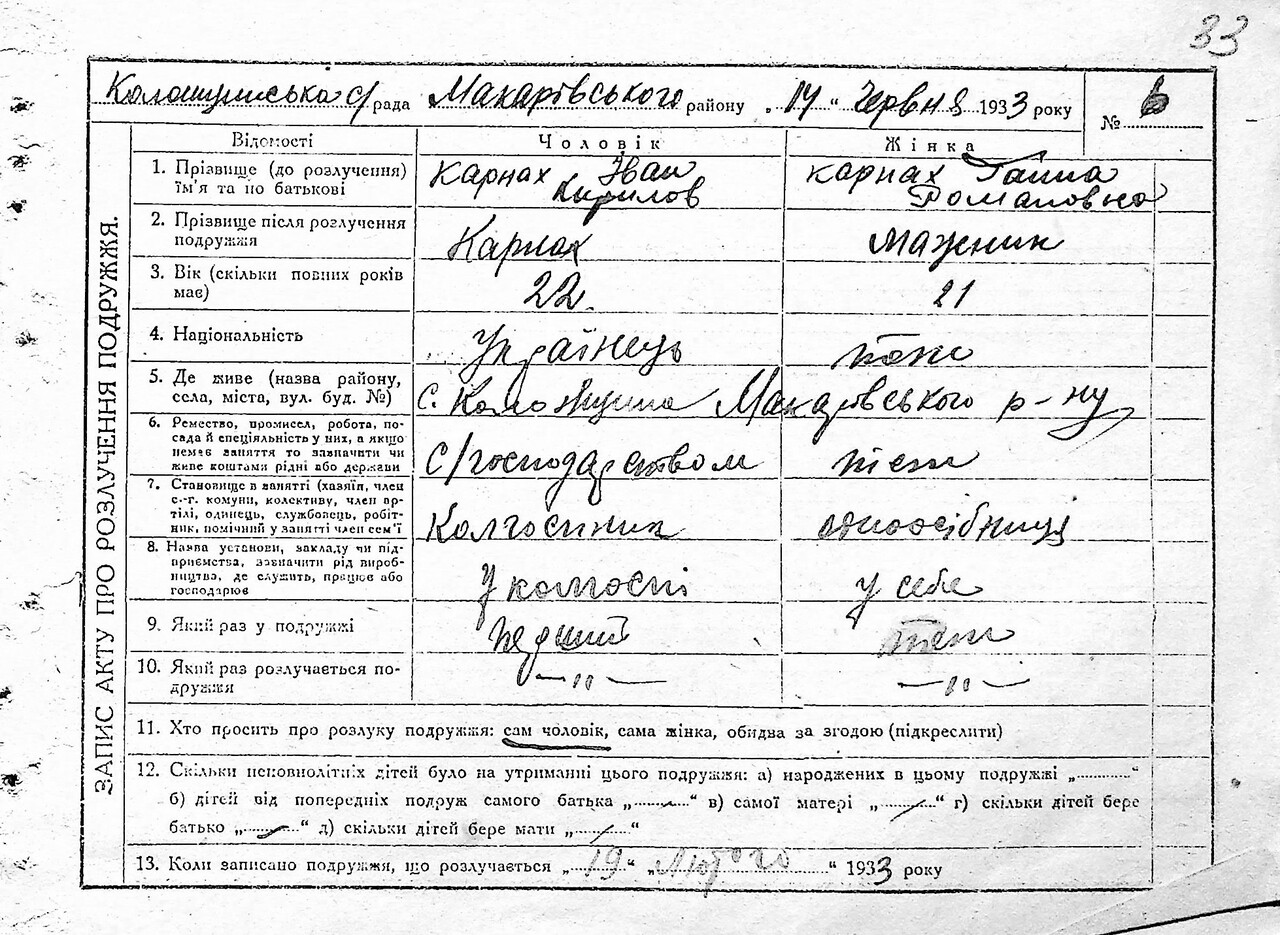 33
с/рада Макарівського району „14“ Червня 1933 року
№ 6
ЗАПИС АКТУ ПРО РОЗЛУЧЕННЯ ПОДРУЖЖЯ.
Відомості Чоловік Жінка
1. Прізвище (до розлучення) Карнах Іван карнах Ганна
ім'я та по батькові Кирилов Романовна
2. Прізвище після розлучення
подружжя Карнах Мажник
3. Вік (скільки повних років
має) 22. 21
4. Національність Українець
5. Де живе (назва району,
села, міста, вул. буд. №) с. Макарівського р-ну
6. Ремество, промисел, робота, по-
сада й спеціяльність у них, а якщо
немає заняття то зазначити чи
живе коштами рідні або держави с/господарством теж
7. Становище в занятті (хазяїн, член
с.-г. комуни, колективу, член ар-
тілі, одинець, службовець, робіт-
ник, помічний у занятті член сем'ї Колгоспник одноосібниця
8. Назва установи, закладу чи під-
приємства, зазначити рід вироб-
ництва, де служить, працює або
господарює У колгоспі у себе
9. Який раз у подружжі теж
10. Який раз розлучається по-
дружжя —〃— —〃—
11. Хто просить про розлуку подружжя: сам чоловік, сама жінка, обидва за згодою (підкреслити)
12. Скільки неповнолітніх дітей було на утриманні цього подружжя: а) народжених в цьому подружжі „..........“
б) дітей від попередніх подруж самого батька „..........“ в) самої матері „..........“ г) скільки дітей бере
батько „..........“ д) скільки дітей бере мати „..........“
13. Коли записано подружжя, що розлучається „19“ „Лютого“ 1933 року